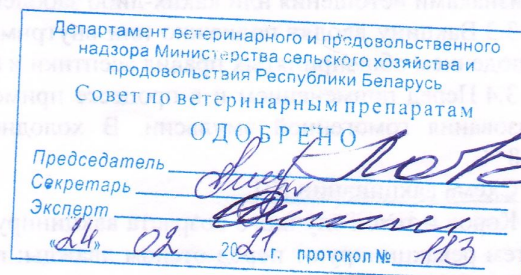 Департамент ветеринарного и продовольственного
надзора Министерства сельского хозяйства и
продовольствия Республики Беларусь
Совет по ветеринарным препаратам
ОДОБРЕНО
Председатель
Секретарь
Эксперт
«24» 02 2021 г. протокол № 113